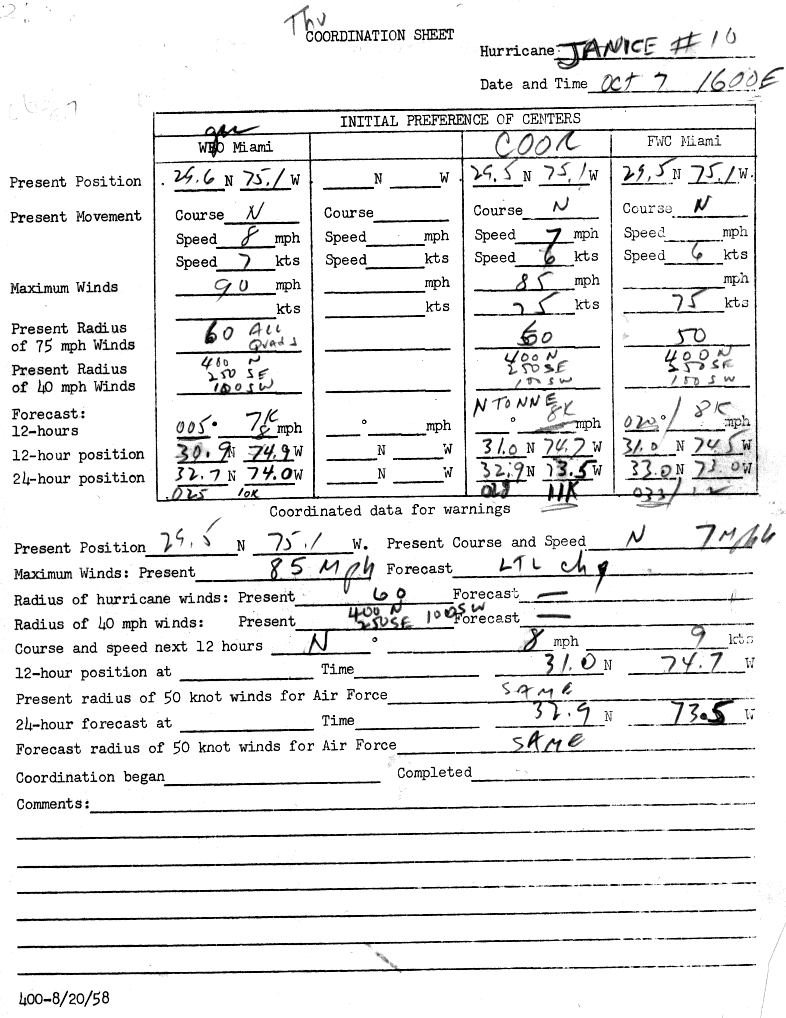 Thu
COORDINATION SHEET
Hurricane JANICE #10
Date and Time OCT 7 1600E
7
INITIAL PREFERENCE OF CENTERS
WBO Miami COOR FWC Miami
Present Position 29.6 N 75.1 W N W 29.5 N 75.1 W 29.5 N 75.1 W
Present Movement Course N Course Course N Course N
Speed 8 mph Speed mph Speed 7 mph Speed mph
Speed 7 kts Speed kts Speed 6 kts Speed 6 kts
Maximum Winds 90 mph mph 85 mph mph
kts kts 75 kts 75 kts
Present Radius 60 ALL 60 50
of 75 mph Winds QUADS
Present Radius 400 N 400 N 400 N
250 SE 250 SE 250 SE
of 40 mph Winds 100 SW 100 SW 100 SW
Forecast: N TO NNE
12-hours 005° 7K 8 mph ° mph ° 8K mph 020° / 8K mph
12-hour position 30.9 N 74.9 W N W 31.0 N 74.7 W 31.0 N 74.5 W
24-hour position 32.7 N 74.0 W N W 32.9 N 73.5 W 33.0 N 73.0 W
025 10K 028 11K 033/12
Coordinated data for warnings
Present Position 29.5 N 75.1 W. Present Course and Speed N 7 Mph
Maximum Winds: Present 85 Mph Forecast LTL chg
Radius of hurricane winds: Present 60 Forecast —
Radius of 40 mph winds: Present 400 N 250 SE 100 SW Forecast —
Course and speed next 12 hours N ° 8 mph 9 kts
12-hour position at Time 31.0 N 74.7 W
Present radius of 50 knot winds for Air Force SAME
24-hour forecast at Time 32.9 N 73.5 W
Forecast radius of 50 knot winds for Air Force SAME
Coordination began Completed
Comments:
400-8/20/58